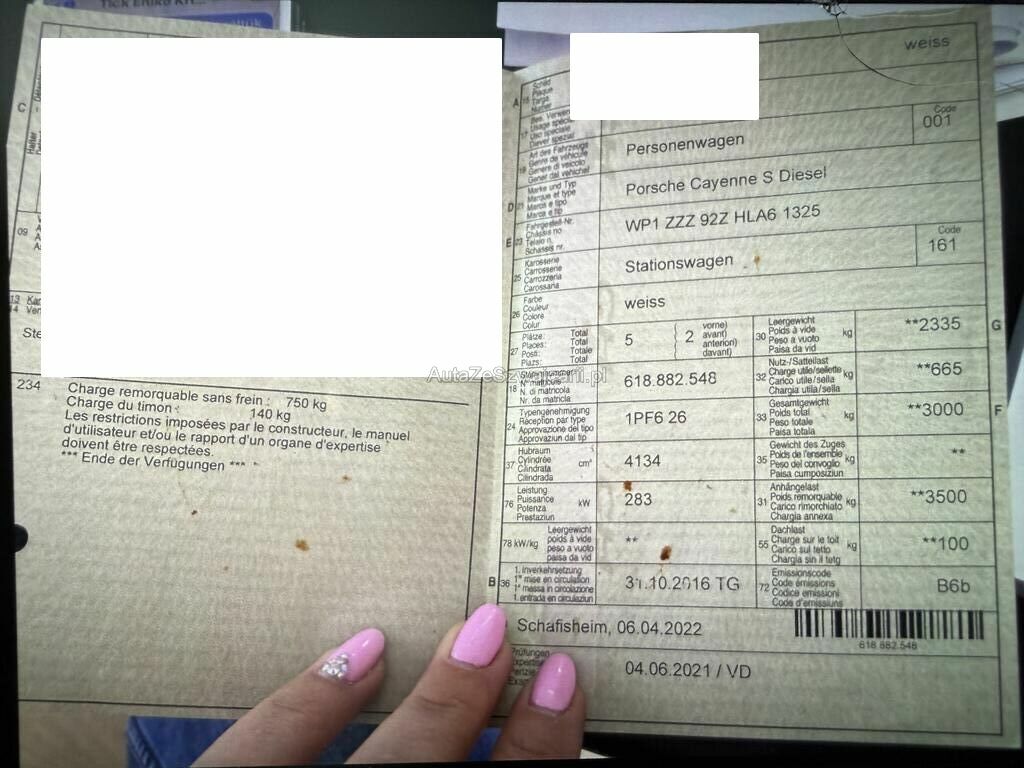 weiss
C
Halter
A 15 Schild
Plaque
Targa
Numer
17 Bes. Verwen
Usage spécia
Uso speciale
Diever spezial
19 Art des Fahrzeugs
Genre de véhicule
Genere di veicolo
Gener dal vehichel
Personenwagen
Code
001
D 21 Marke und Typ
Marque et type
Marca e tipo
Marca e tip
Porsche Cayenne S Diesel
E 23 Fahrgestell-Nr.
Châssis no
Telaio n.
Schassis nr.
WP1 ZZZ 92Z HLA6 1325
09
25 Karosserie
Carrosserie
Carrozzeria
Carossaria
Stationswagen
Code
161
13 Kar
14 Ver
26 Farbe
Couleur
Colore
Colur
weiss
Ste
27 Plätze: Total
Places: Total
Posti: Totale
Plazs: Total
5
2 vorne)
avant)
anteriori)
davant)
30 Leergewicht
Poids à vide
Peso a vuoto
Paisa da vid
kg
**2335
G
18 Stammnummer
N° matricule
N. di matricola
Nr. da matricla
618.882.548
32 Nutz-/Sattellast
Charge utile/sellette
Carico utile/sella
Chargia utila/sella
kg
**665
AutaZeSzwajcarii.pl
234
Charge remorquable sans frein : 750 kg
Charge du timon : 140 kg
Les restrictions imposées par le constructeur, le manuel
d'utilisateur et/ou le rapport d'un organe d'expertise
doivent être respectées.
*** Ende der Verfügungen ***
24 Typengenehmigung
Réception par type
Approvazione del tipo
Approvaziun dal tip
1PF6 26
33 Gesamtgewicht
Poids total
Peso totale
Paisa totala
kg
**3000
F
37 Hubraum
Cylindrée
Cilindrata
Cilindrada
cm³
4134
35 Gewicht des Zuges
Poids de l'ensemble
Peso del convoglio
Paisa cumposiziun
kg
**
76 Leistung
Puissance
Potenza
Prestaziun
kW
283
31 Anhängelast
Poids remorquable
Carico rimorchiato
Chargia annexa
kg
**3500
78 kW/kg
Leergewicht
poids à vide
peso a vuoto
paisa da vid
**
55 Dachlast
Charge sur le toit
Carico sul tetto
Chargia sin il tetg
kg
**100
B 36 1. Inverkehrsetzung
1re mise en circulation
1a messa in circolazione
1. entrada en circulaziun
31.10.2016 TG
72 Emissionscode
Code émissions
Codice emissioni
Code d'emissiuns
B6b
Schafisheim, 06.04.2022
618.882.548
Prüfungen
04.06.2021 / VD